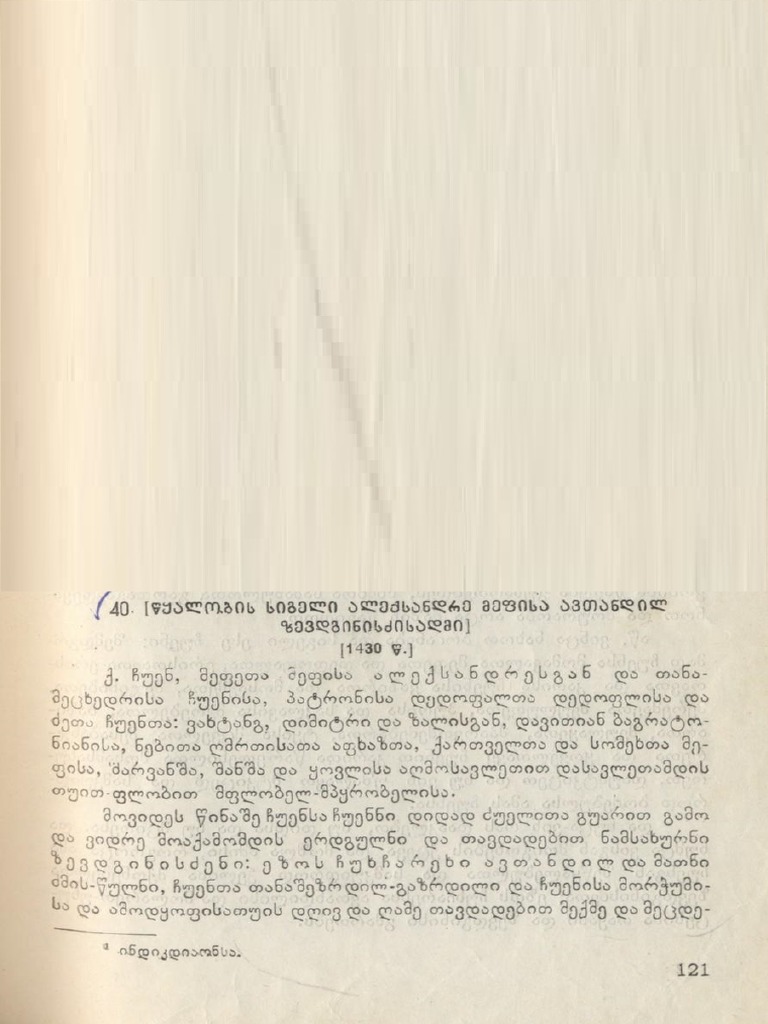 40. [წყალობის სიგელი ალექსანდრე მეფისა ავთანდილ
ზევდგინისძისადმი]
[1430 წ.]
ქ. ჩუენ, მეფეთა მეფისა ალექსანდრესგან და თანა-
მეცხედრისა ჩუენისა, პატრონისა დედოფალთა დედოფლისა და
ძეთა ჩუენთა: ვახტანგ, დიმიტრი და ზალისგან, დავითიან ბაგრატო-
ნიანისა, ნებითა ღმრთისათა აფხაზთა, ქართველთა და სომეხთა მე-
ფისა, შარვანშა, შანშა და ყოვლისა აღმოსავლეთით დასავლეთამდის
თუით-ფლობით მფლობელ-მპყრობელისა.
მოვიდეს წინაშე ჩუენსა ჩუენნი დიდად ძუელითა გუარით გამო
და ვიდრე მოაქამომდის ერდგულნი და თავდადებით ნამსახურნი
ზევდგინისძენი: ეზოს ჩუხჩარეხი ავთანდილ და მათნი
ძმის-წულნი, ჩუენთა თანაშეზრდილ-გაზრდილი და ჩუენისა მორჭუმი-
სა და ამოდყოფისათუის დღივ და ღამე თავდადებით მექმე და მეცდე-
ª ინდიკდიაონსა.
121